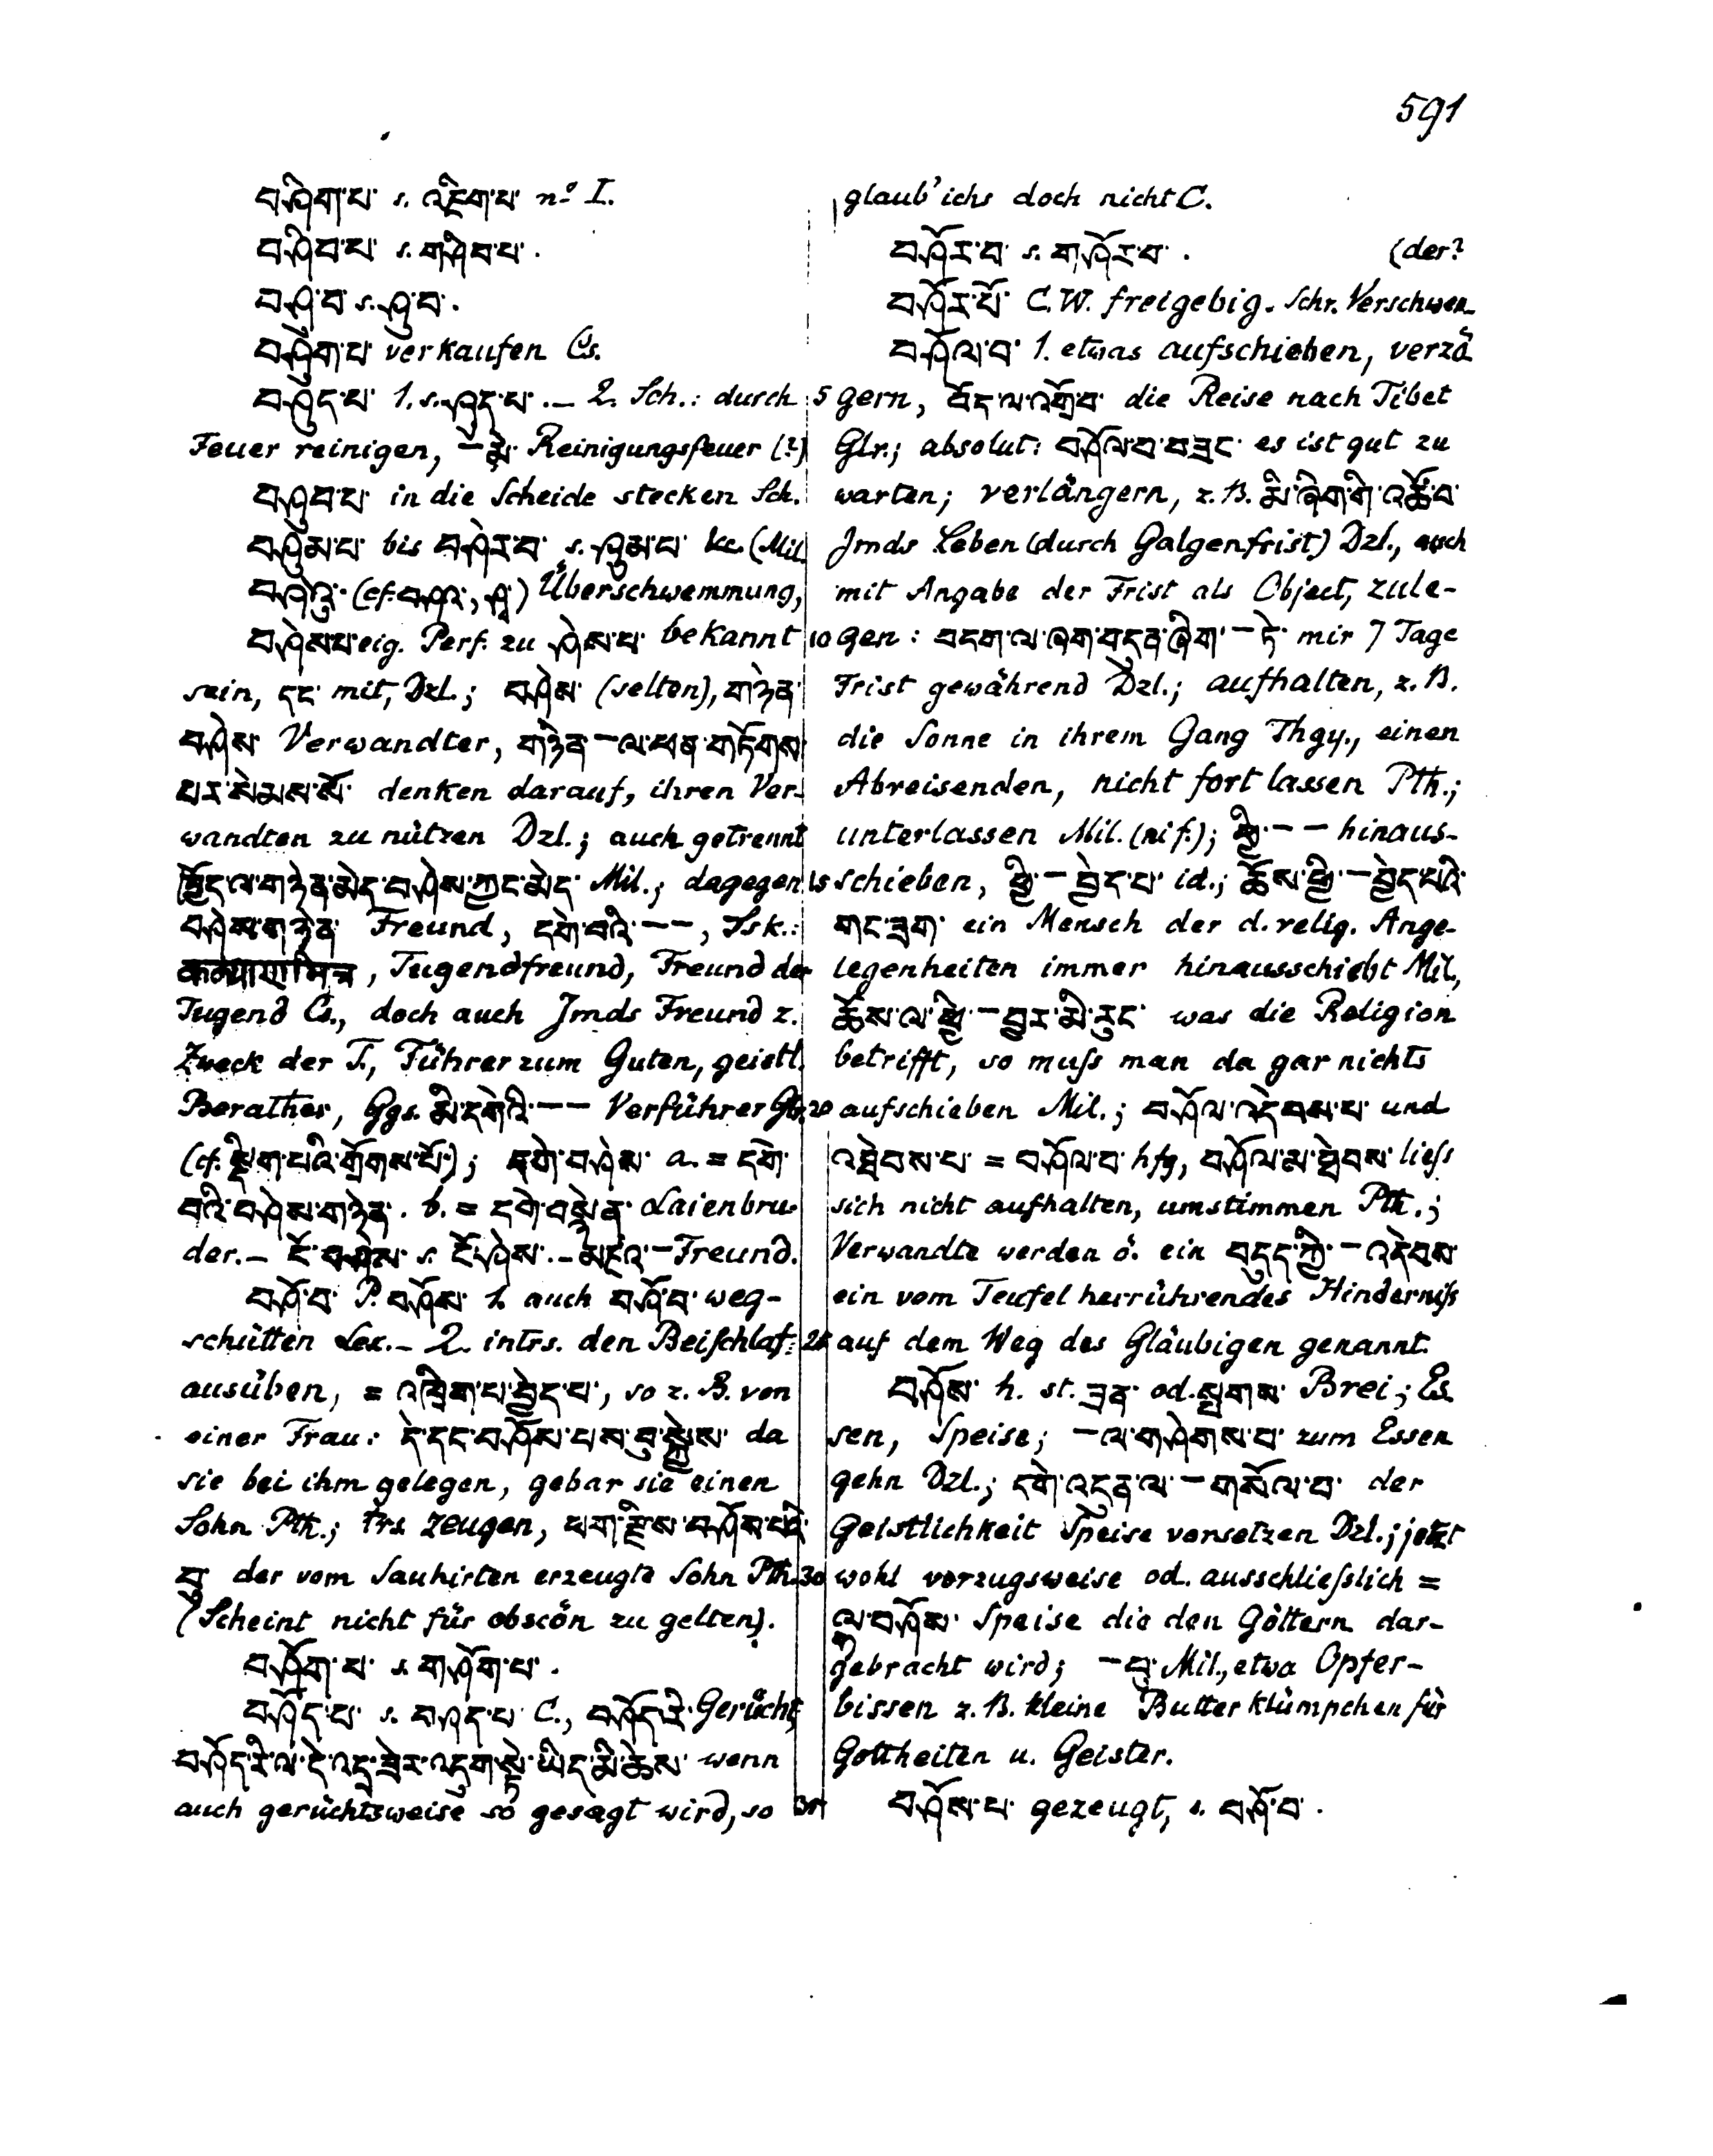 591
བཤིག་པ་ s. འཇིག་པ་ nº I.
བཤིབ་པ་ s. གཤིབ་པ་.
བཤུ་བ་ s. ཤུ་བ་.
བཤུག་པ་ verkaufen Cs.
བཤུད་པ་ 1. s. ཤུད་པ་. – 2. Sch.: durch
Feuer reinigen, – མེ་ Reinigungsfeuer (?)
བཤུབ་པ་ in die Scheide stecken Sch.
བཤུམ་པ་ bis བཤེར་བ་ s. ཤུམ་པ་ &c. (Mil.
བཤེའུ་ (cf. བཤའ་, ) Überschwemmung,
བཤེས་པ་ eig. Perf. zu ཤེས་པ་ bekannt
sein, དང་ mit, Dzl.; བཤེས་ (selten), གཉེན་
བཤེས་ Verwandter, གཉེན་ – ལ་ཕན་གདོགས་
པར་སེམས་སོ་ denken darauf, ihren Ver-
wandten zu nützen Dzl.; auch getrennt
བོད་ལ་གཉེན་མེད་བཤེས་ཀྱང་མེད་ Mil.; dagegen
བཤེས་གཉེན་ Freund, དགེ་བའི་ – –, Ssk.:
कल्याणमित्र, Tugendfreund, Freund der
Tugend Cs., doch auch Jmds Freund z.
Zweck der T., Führer zum Guten, geistl.
Berather, Ggs. མི་དགེའི་ – – Verführer Glr.
(cf. སྡིག་པའི་གྲོགས་པོ་); དགེ་བཤེས་ a. = དགེ་
བའི་བཤེས་གཉེན་. b. = དགེ་བསྙེན་ Laienbru-
der. – ངོ་བཤེས་ s. ངོ་ཤེས་. – མཛའ་ – Freund.
བཤོ་བ་ P. བཤོས་ 1. auch བཤོ་བ་ weg-
schütten Lex. – 2. intrs. den Beischlaf
ausüben, = འཁྲིག་པ་བྱེད་པ་, so z. B. von
einer Frau: དེ་དང་བཤོས་པས་བུ་སྐྱེས་ da
sie bei ihm gelegen, gebar sie einen
Sohn Pth.; trs. zeugen, ཕག་རྫིས་བཤོས་པའི་
བུ་ der vom Sauhirten erzeugte Sohn Pth.
(Scheint nicht für obscön zu gelten).
བཤོག་པ་ s. གཤོག་པ་.
བཤོད་པ་ s. བཤད་པ་ C., བཤོད་རི་ Gerücht,
བཤོད་རི་ལ་དེ་འདྲ་ཟེར་འདུག་སྟེ་ཡིད་མི་ཆེས་ wenn
auch gerüchtsweise so gesagt wird, so
glaub' ichs doch nicht C.
བཤོར་བ་ s. གཤོར་བ་. (der?
བཤོར་པོ་ C.W. freigebig. Schr. Verschwen-
བཤོལ་བ་ 1. etwas aufschieben, verzö
5 gern, བོད་ལ་འགྲོ་བ་ die Reise nach Tibet
Glr.; absolut: བཤོལ་བ་བཟང་ es ist gut zu
warten; verlängern, z. B. མི་ཞིག་གི་འཚོ་བ་
Jmds Leben (durch Galgenfrist) Dzl., auch
mit Angabe der Frist als Object, zule-
10 gen: བདག་ལ་ཞག་བདུན་ཞིག་ – ཏེ་ mir 7 Tage
Frist gewährend Dzl.; aufhalten, z. B.
die Sonne in ihrem Gang Thgy., einen
Abreisenden, nicht fort lassen Pth.;
unterlassen Mil. (ni f.); ཕྱི་ – – hinaus-
15 schieben, ཕྱི་ – བྱེད་པ་ id.; ཆོས་ཕྱི་ – བྱེད་པའི་
གང་ཟག་ ein Mensch der d. relig. Ange-
legenheiten immer hinausschiebt Mil.,
ཆོས་ལ་ཕྱི་ – བྱར་མི་རུང་ was die Religion
betrifft, so muss man da gar nichts
20 aufschieben Mil.; བཤོལ་འདེབས་པ་ und
འཐེབས་པ་ = བཤོལ་བ་ hfg, བཤོལ་མ་ཐེབས་ liess
sich nicht aufhalten, umstimmen Pth.;
Verwandte werden ö. ein བདུད་ཀྱི་ – འདེབས་
ein vom Teufel herrührendes Hinderniss
25 auf dem Weg des Gläubigen genannt.
བཤོས་ h. st. ཟན་ od. སྤགས་ Brei; Es-
sen, Speise; – ལ་གཤེགས་པ་ zum Essen
gehn Dzl.; དགེ་འདུན་ལ་ – གསོལ་བ་ der
Geistlichkeit Speise vorsetzen Dzl.; jetzt
30 wohl vorzugsweise od. ausschliesslich =
ལྷ་བཤོས་ Speise die den Göttern dar-
gebracht wird; – བུ་ Mil., etwa Opfer-
bissen z. B. kleine Butterklümpchen für
Gottheiten u. Geister.
35 བཤོས་པ་ gezeugt, s. བཤོ་བ་.